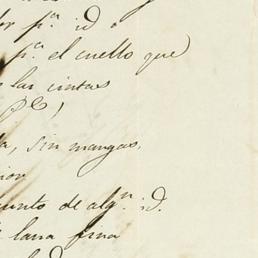 pª. id
pª. el cuello que
las cintas
, sin mangas,
unto de algn. id.
lana fina